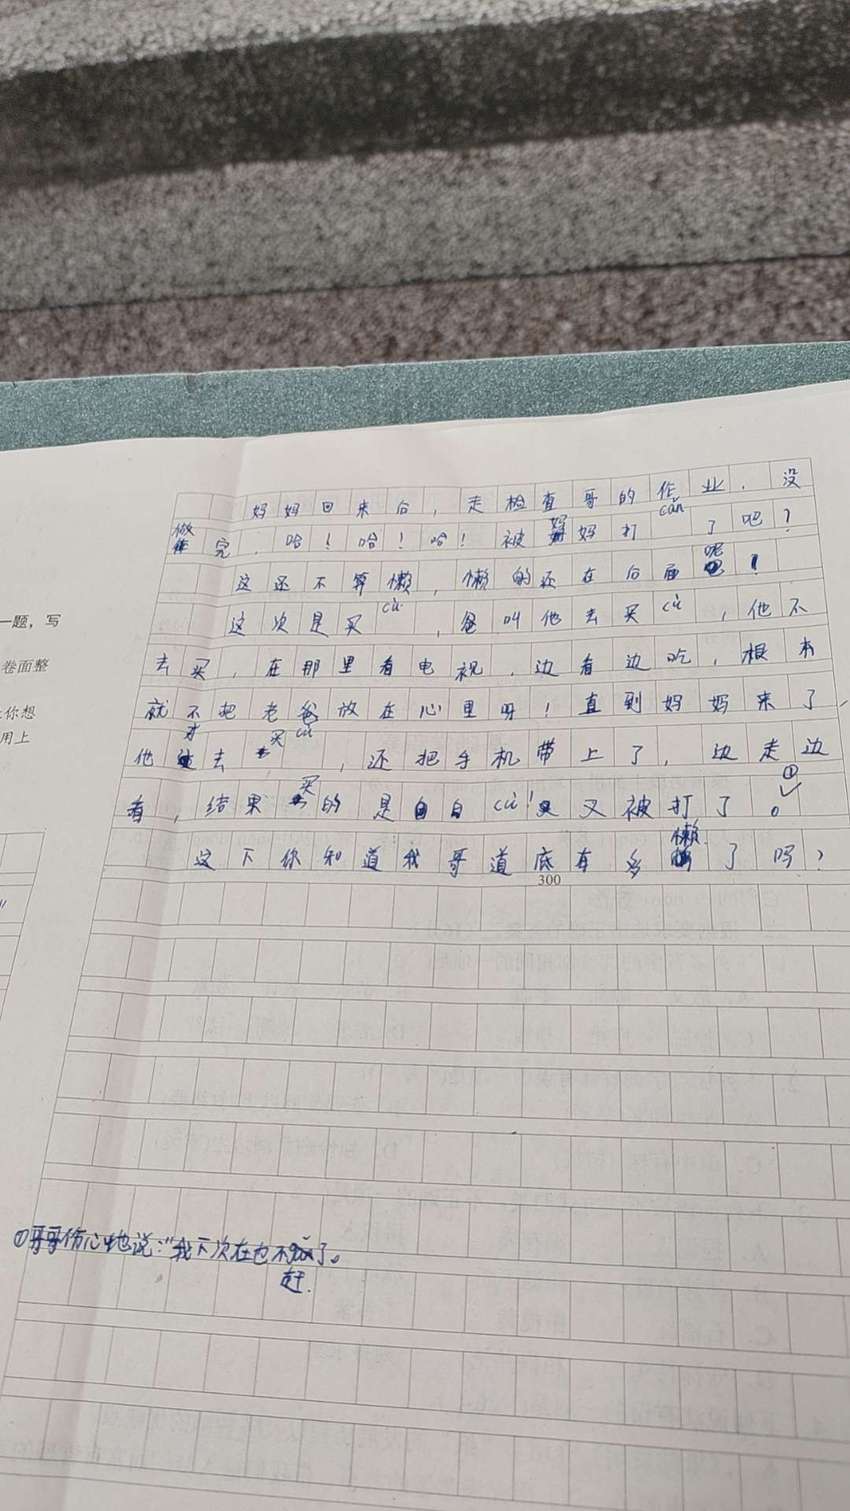 一题，写
卷面整
你想
用上
妈妈回来后，走检查哥的作业，没
做完，哈！哈！哈！被妈妈打cǎn了吧？
这还不算懒，懒的还在后面呢！
这次是买cù，爸叫他去买cù，他不
去买，在那里看电视，边看边吃，根本
就不把老爸放在心里呀！直到妈妈来了，
他才去买cù，还把手机带上了，边走边
看，结果买的是白白cù！又被打了。①
这下你知道我哥道底有多懒了吗？
300
①哥哥伤心地说：“我下次在也不赶了。
赶.